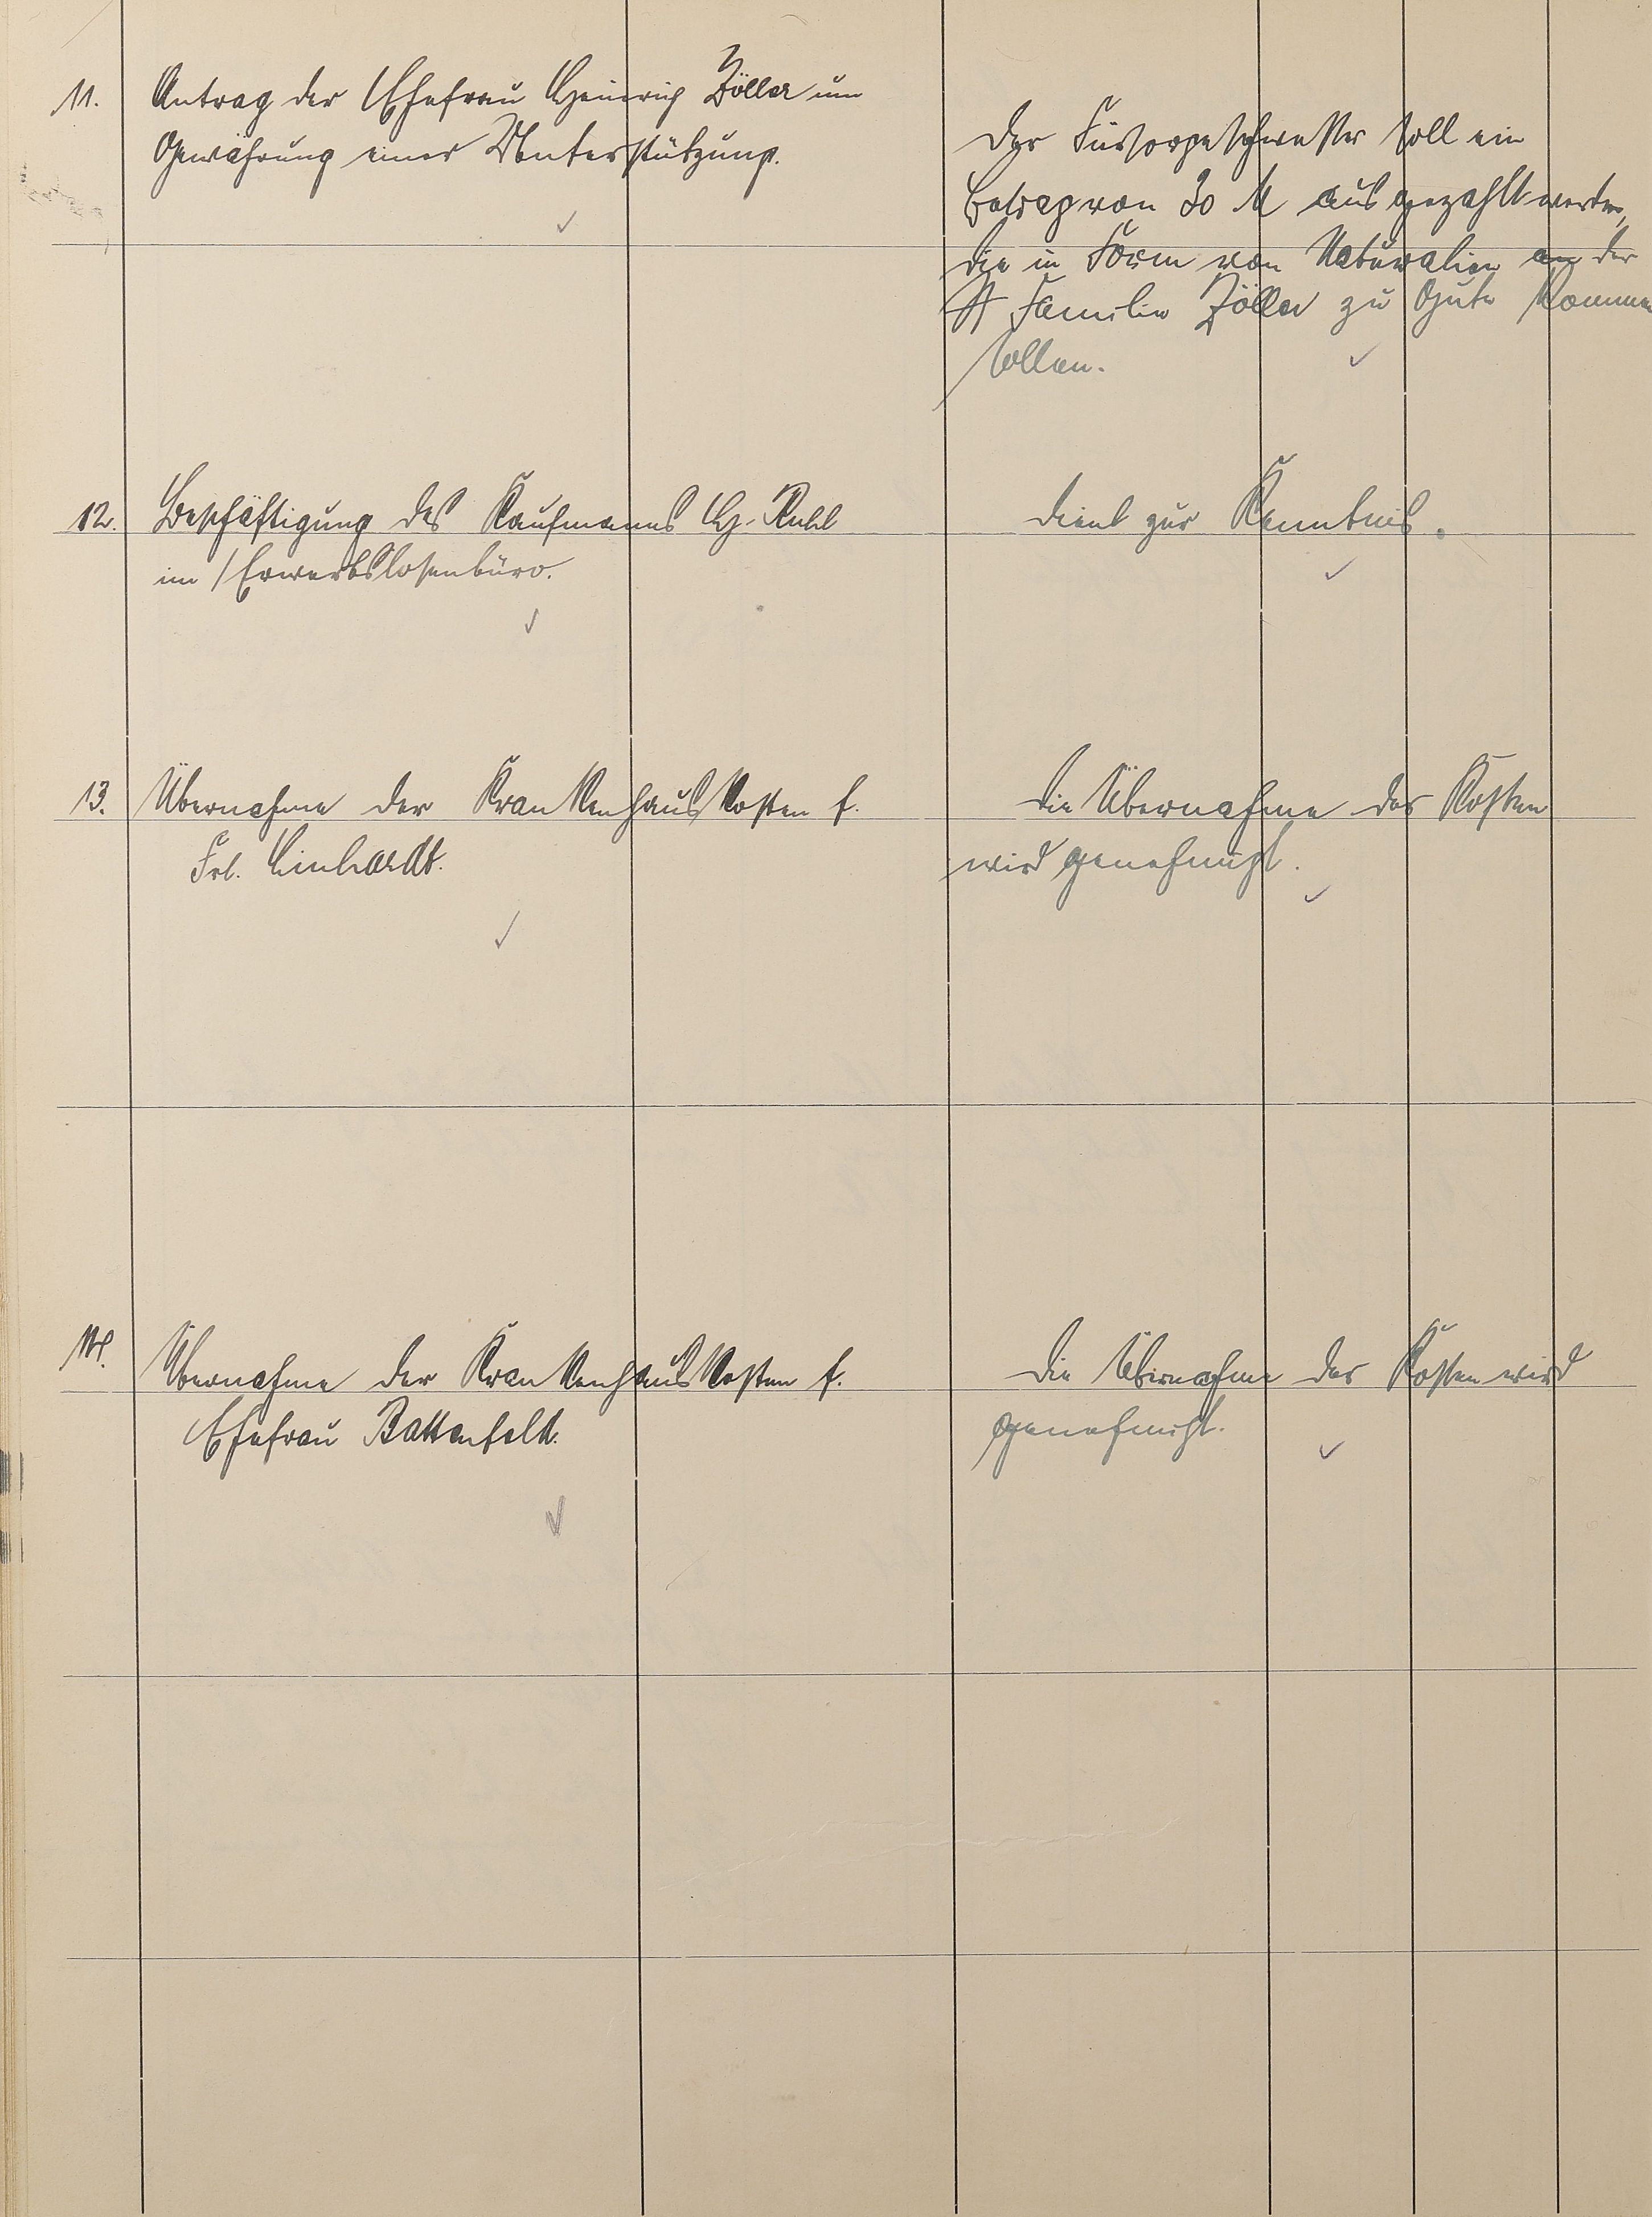 11. Antrag der Ehefrau Heinrich Zöller um
Gewährung einer Unterstützung.
Der Fürsorgeschwester soll ein
Betrag von 30 M ausgezahlt werden,
die in Form von Naturalien an der
Familie Zöller zu Gute kommen
sollen.
12. Beschäftigung des Kaufmanns H. Ruhl
im Erwerbslosenbüro.
Dient zur Kenntnis.
13. Übernahme der Krankenhauskosten f.
Frl. Linhardt.
Die Übernahme der Kosten
wird genehmigt.
14. Übernahme der Krankenhauskosten f.
Ehefrau Battenfeld.
Die Übernahme der Kosten wird
genehmigt.